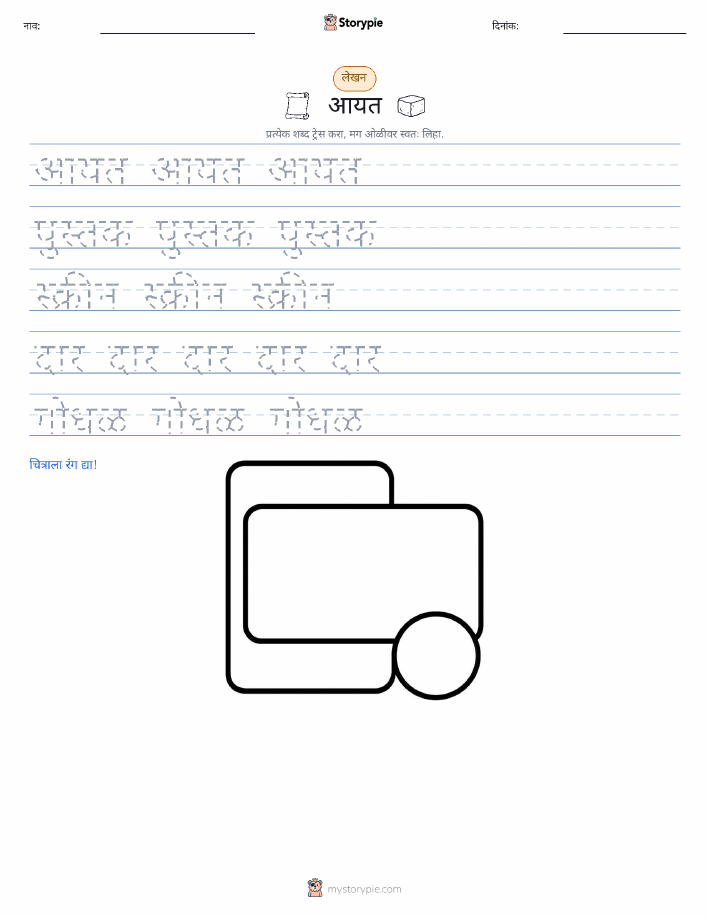 नाव: Storypie दिनांक:
लेखन
आयत
प्रत्येक शब्द ट्रेस करा, मग ओळीवर स्वतः लिहा.
आयत आयत आयत
पुस्तक पुस्तक पुस्तक
स्क्रीन स्क्रीन स्क्रीन
दार दार दार दार दार
गोधळ गोधळ गोधळ
चित्राला रंग द्या!
mystorypie.com